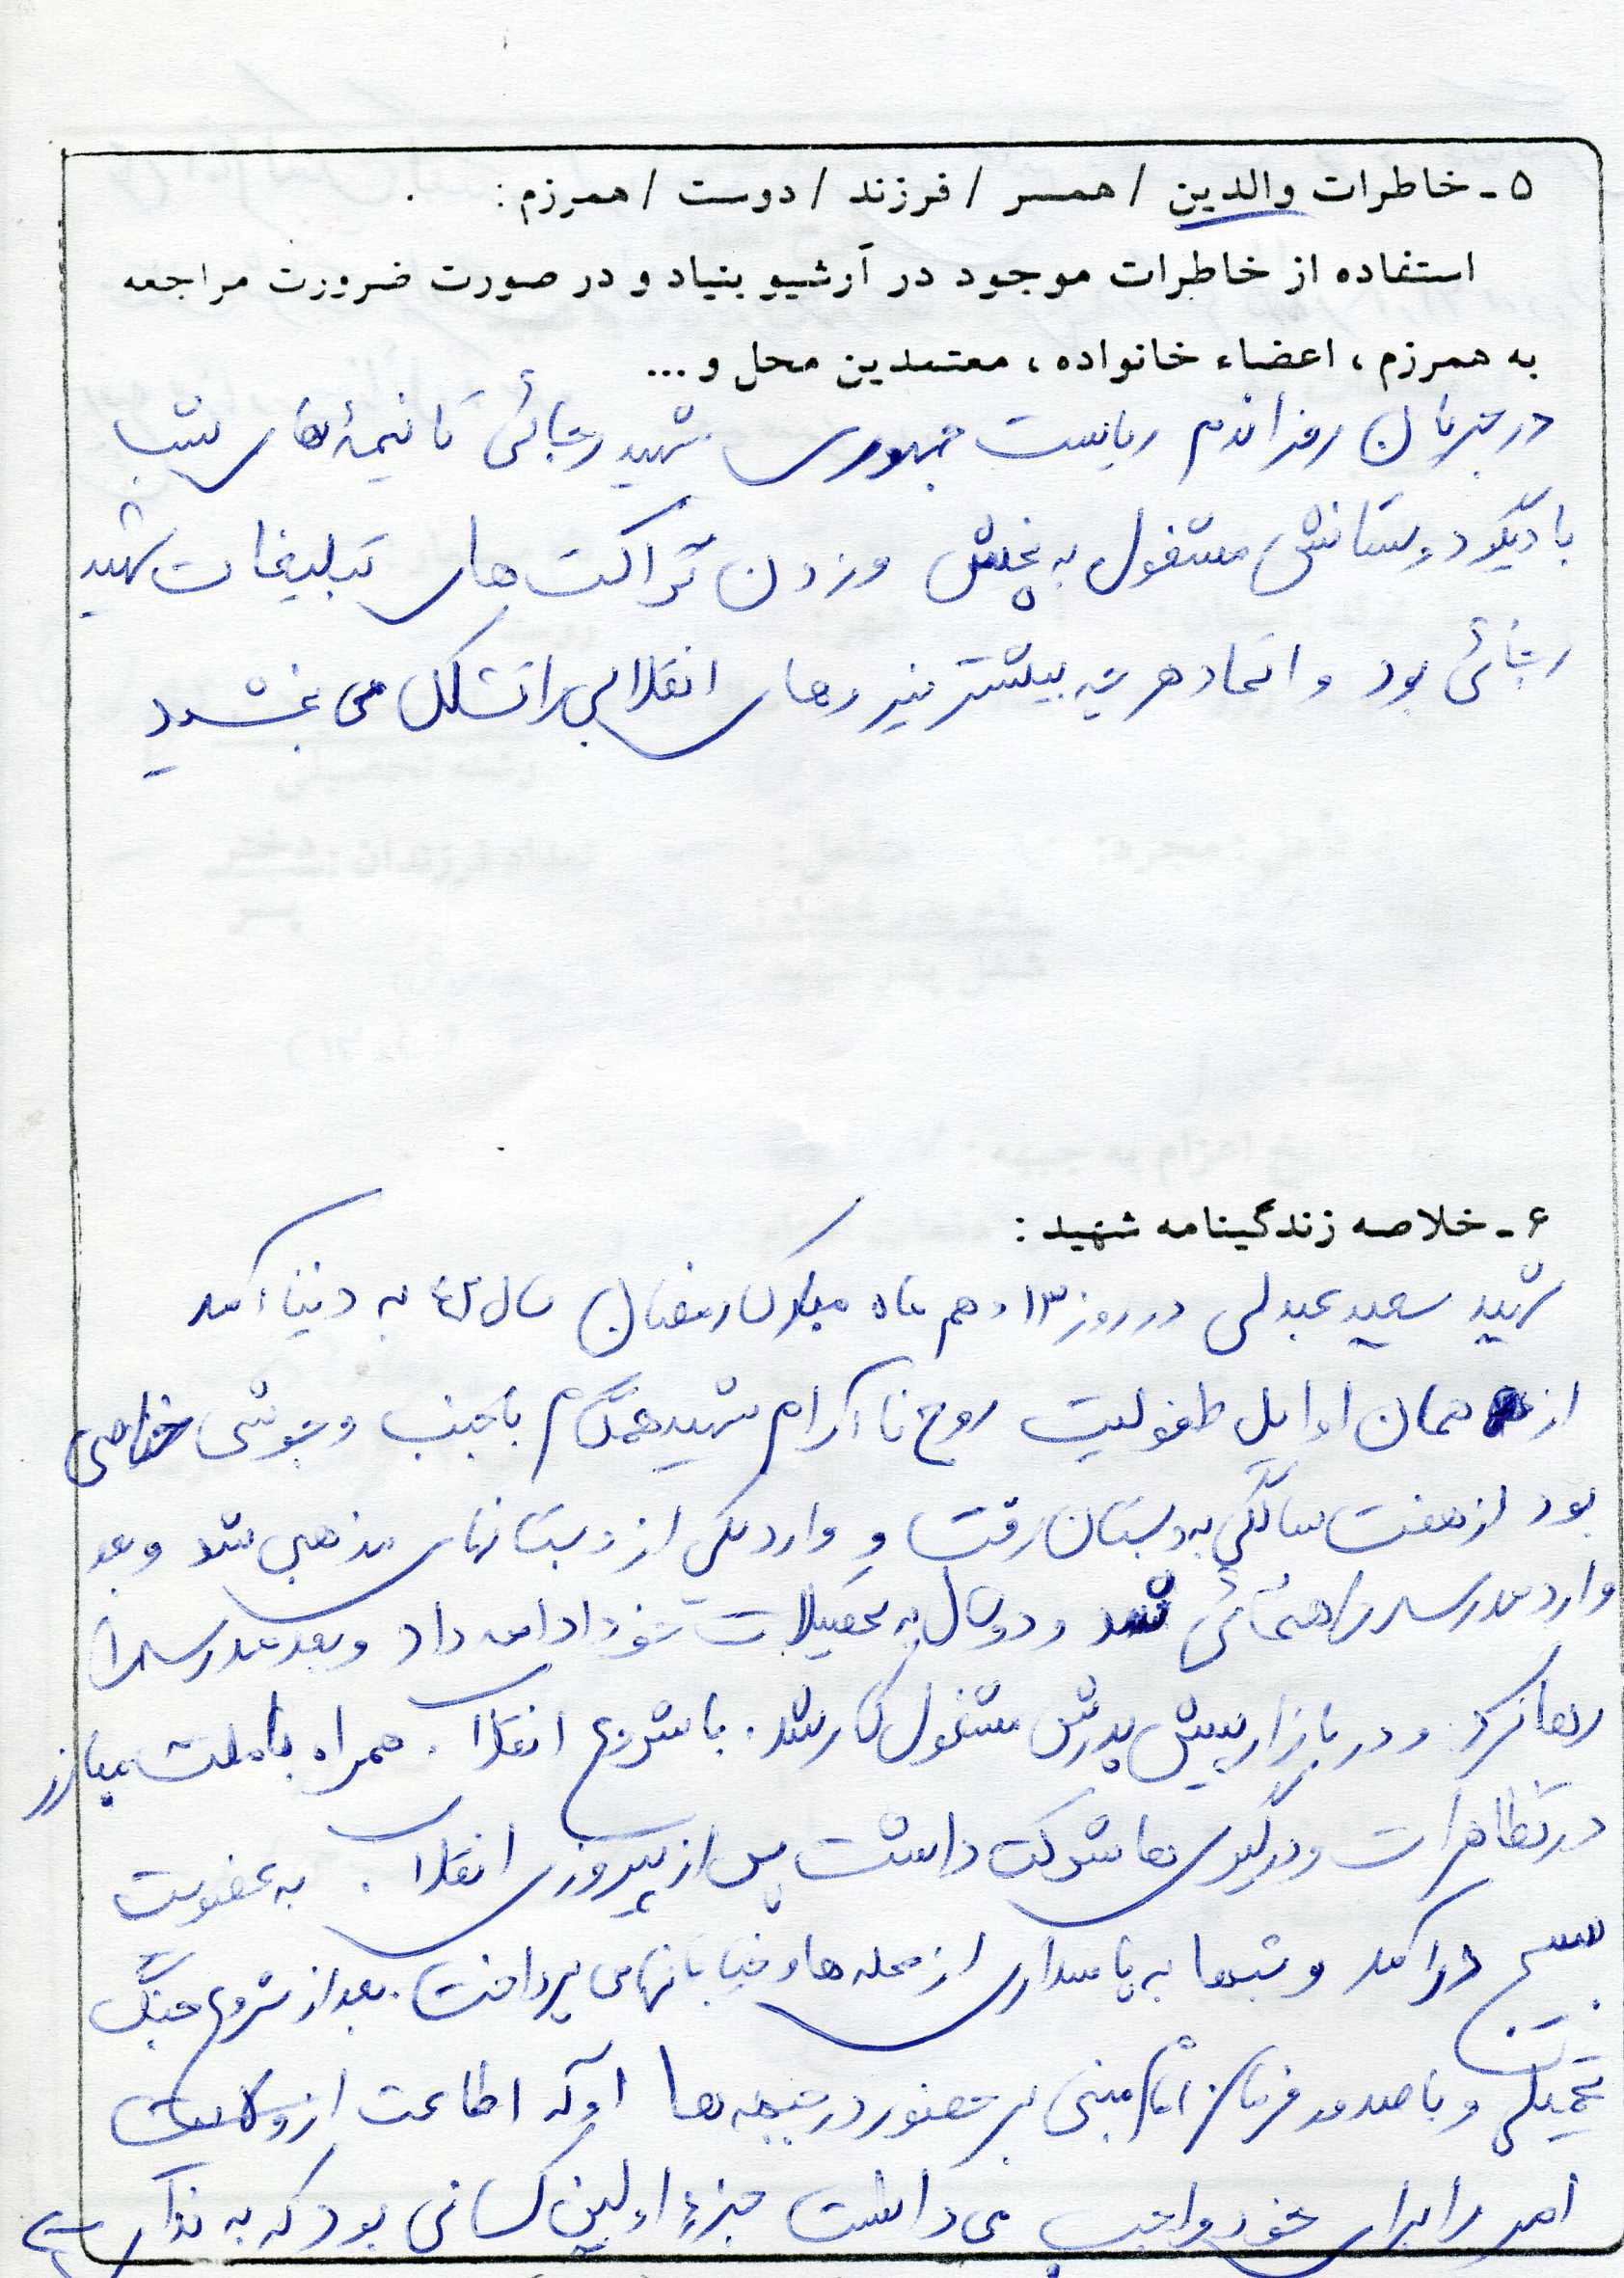 ۵ - خاطرات والدین / همسر / فرزند / دوست / همرزم :
استفاده از خاطرات موجود در آرشیو بنیاد و در صورت ضرورت مراجعه
به همرزم ، اعضاء خانواده ، معتمدین محل و ...
در جریان رفراندم ریاست جمهوری شهید رجائی تا نیمه‌های شب
با دیگر دوستانش مشغول به پخش و زدن تراکت های تبلیغات شهید
رجائی بود و اتحاد هر چه بیشتر نیروهای انقلابی را تشکل می بخشید
۶ - خلاصه زندگینامه شهید :
شهید سعید عبدلی در روز ۱۳ دهم ماه مبارک رمضان سال ۴۵ به دنیا آمد
از همان اوایل طفولیت روح ناآرام شهید همگام با جنب و جوشی خاصی
بود از هفت سالگی به دبستان رفت و وارد یکی از دبستانهای مذهبی شد و بعد
وارد مدرسه راهنمائی شد و دو سال به تحصیلات خود ادامه داد و بعد مدرسه را
رها کرد و در بازار پیش پدرش مشغول کار شد . با شروع انقلاب همراه با ملت مبارز
در تظاهرات و درگیری ها شرکت داشت پس از پیروزی انقلاب به عضویت
بسیج درآمد و شبها به پاسداری از محله ها و خیابانها می پرداخت . بعد از شروع جنگ
تحمیلی و با صدور فرمان امام مبنی بر حضور در جبهه ها او که اطاعت از ولایت
امر را برای خود واجب می دانست جزء اولین کسانی بود که به ندای